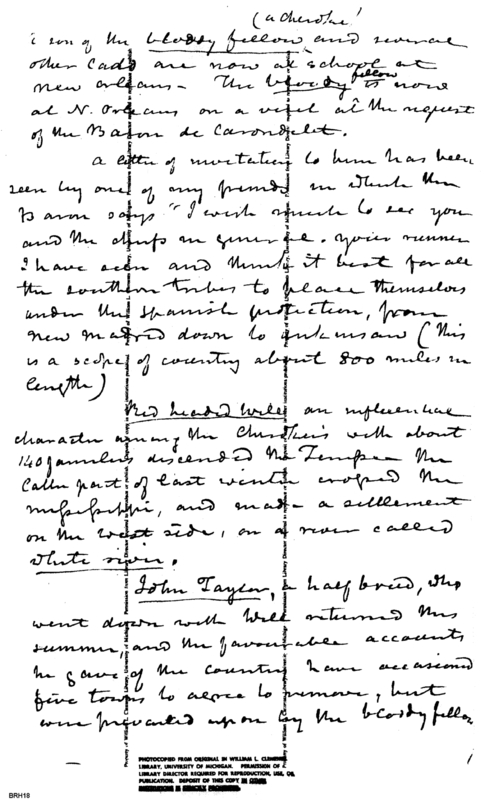 (a cherokee)
a son of the bloody fellow and several
other Lads are now at school at
new orleans – The bloody fellow is now
at N. Orleans on a visit at the request
of the Baron de Carondelet.
a letter of invitation to him has been
seen by one of my friends in which the
Baron says "I wish much to see you
and the chiefs in general. your runner
I have seen and think it best for all
the southern tribes to place themselves
under the Spanish protection, from
new madrid down to Arkinsaw (this
is a scope of country about 800 miles in
length)
Red headed Will an influential
character among the with about
140 families descended the the
latter part of last winter crossed the
mississippi, and made a settlement
on the west side, on a river called
white river.
John Taylor, a half breed, who
went down with Will returned this
summer, and the favourable accounts
he gave of the country have occasioned
five towns to agree to remove, but
were prevailed upon by the bloody fellow
PHOTOCOPIED FROM ORIGINAL IN WILLIAM L. CLEMENTS
LIBRARY, UNIVERSITY OF MICHIGAN. PERMISSION OF
LIBRARY DIRECTOR REQUIRED FOR REPRODUCTION, USE, OR
PUBLICATION. DEPOSIT OF THIS COPY IN OTHER
BRH18